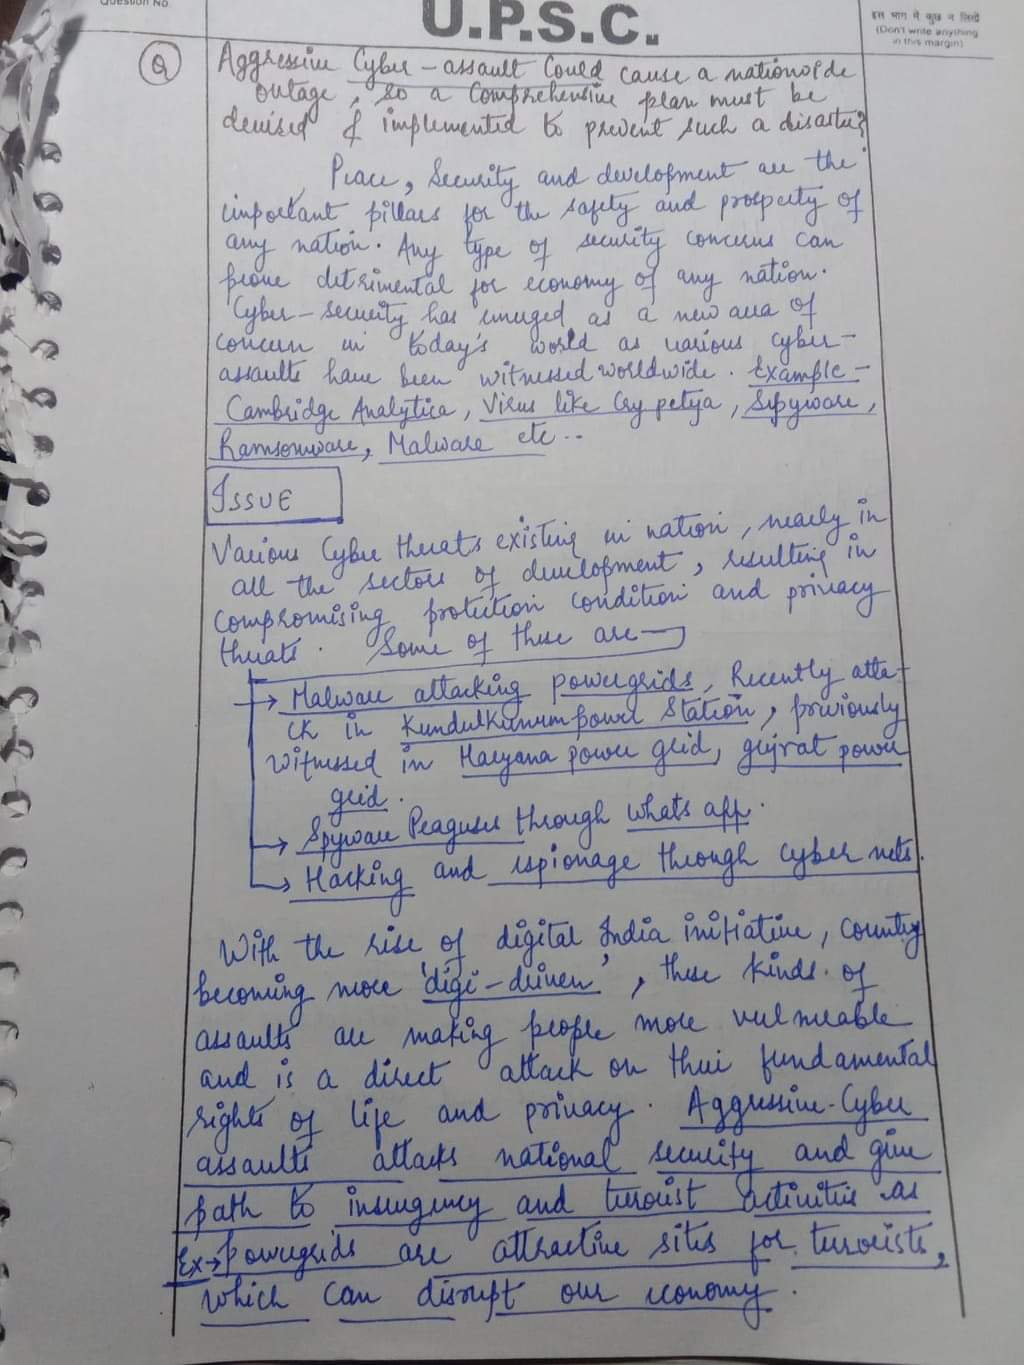 Question No.
U.P.S.C.
इस भाग में कुछ न लिखें
(Don't write anything
in this margin)
Q Aggressive Cyber-assault Could cause a nationwide
outage, so a Comprehensive plan must be
devised & implemented to prevent such a disaster?
Peace, Security and development are the
important pillars for the safety and prosperity of
any nation. Any type of security concerns can
prove detrimental for economy of any nation.
Cyber-security has emerged as a new area of
concern in today's world as various cyber-
assaults have been witnessed worldwide. Example-
Cambridge Analytica, Virus like Cry petya, Sipyware,
Ramsomware, Malware etc..
ISSUE
Various Cyber threats existing in nation, nearly in
all the sectors of development, resulting in
compromising protection condition and privacy
threats. Some of these are
→ Malware attacking powergrids, Recently atta-
ck in Kundulkunum power Station, previously
witnessed in Haryana power grid, gujrat power
grid.
→ Spyware Peaguses through whats app.
→ Hacking and espionage through cyber nets.
With the rise of digital India initiative, country
becoming more 'digi-driven', these kinds of
assaults are making people more vulnerable
and is a direct attack on their fundamental
rights of life and privacy. Aggressive-Cyber
assaults attacks national security and give
path to insurgency and terrorist activities as
Ex→ Powergrids are attractive sites for terrorists,
which can disrupt our economy.